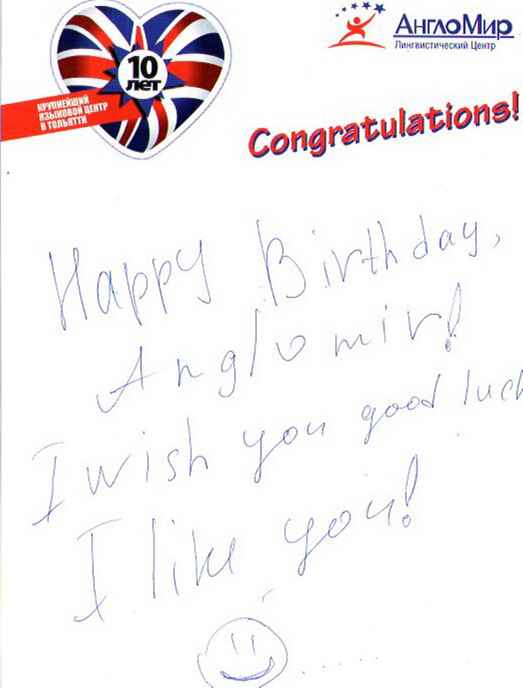 10
ЛЕТ
КРУПНЕЙШИЙ
ЯЗЫКОВОЙ ЦЕНТР
В ТОЛЬЯТТИ
АнглоМир
Лингвистический Центр
Congratulations!
Happy Birthday,
Anglomir!
I wish you good luck
I like you!